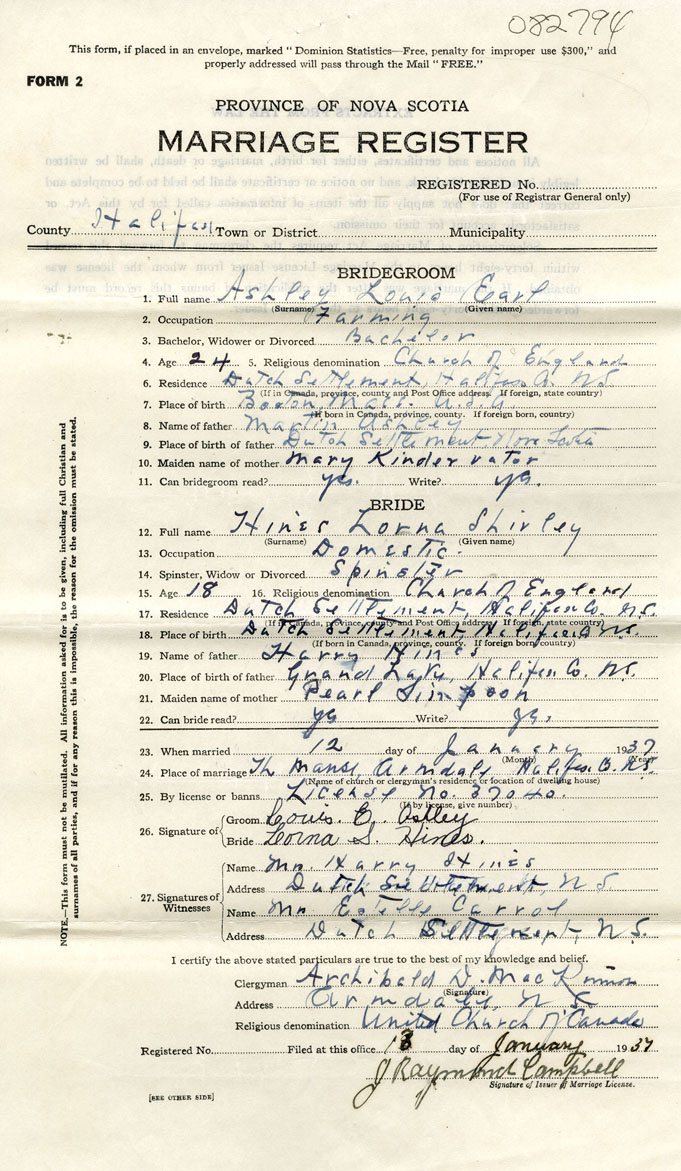 082794
This form, if placed in an envelope, marked "Dominion Statistics—Free, penalty for improper use $300," and
properly addressed will pass through the Mail "FREE."
FORM 2
PROVINCE OF NOVA SCOTIA
MARRIAGE REGISTER
REGISTERED No.
(For use of Registrar General only)
County Halifax Town or District Municipality
BRIDEGROOM
1. Full name Ashley Louis Earl
(Surname) (Given name)
2. Occupation Farming
3. Bachelor, Widower or Divorced Bachelor
4. Age 24 5. Religious denomination Church of England
6. Residence Dutch Settlement, Halifax Co. N.S.
(If in Canada, province, county and Post Office address. If foreign, state country)
7. Place of birth Boston, Mass. U.S.A.
(If born in Canada, province, county. If foreign born, country)
8. Name of father Martin Ashley
9. Place of birth of father Dutch Settlement Nova Scotia
10. Maiden name of mother Mary Kindervator
11. Can bridegroom read? yes. Write? yes.
BRIDE
12. Full name Hines Lorna Shirley
(Surname) (Given name)
13. Occupation Domestic.
14. Spinster, Widow or Divorced Spinster
15. Age 18 16. Religious denomination Church of England
17. Residence Dutch Settlement, Halifax Co. N.S.
(If in Canada, province, county and Post Office address. If foreign, state country)
18. Place of birth Dutch Settlement, Halifax Co. N.S.
(If born in Canada, province, county. If foreign born, country)
19. Name of father Harry Hines
20. Place of birth of father Grand Lake, Halifax Co. N.S.
21. Maiden name of mother Pearl Simpson
22. Can bride read? yes Write? yes.
23. When married 12 day of January 1937
(Month) (Year)
24. Place of marriage The Manse, Armdale Halifax Co. N.S.
(Name of church or clergyman's residence or location of dwelling house)
25. By license or banns License No. 37040.
(If by license, give number)
26. Signature of Groom Louis E. Ashley
Bride Lorna S. Hines.
27. Signatures of Witnesses
Name Mr. Harry Hines
Address Dutch Settlement N.S.
Name Mrs Estelle Carrol
Address Dutch Settlement, N.S.
I certify the above stated particulars are true to the best of my knowledge and belief.
Clergyman Archibald D. MacKinnon
(Signature)
Address Armdale, N.S.
Religious denomination United Church of Canada
Registered No. Filed at this office 18 day of January 1937
J Raymond Campbell
Signature of Issuer of Marriage License.
[SEE OTHER SIDE]
NOTE.—This form must not be mutilated. All information asked for is to be given, including full Christian and
surnames of all parties, and if for any reason this is impossible, the reason for the omission must be stated.